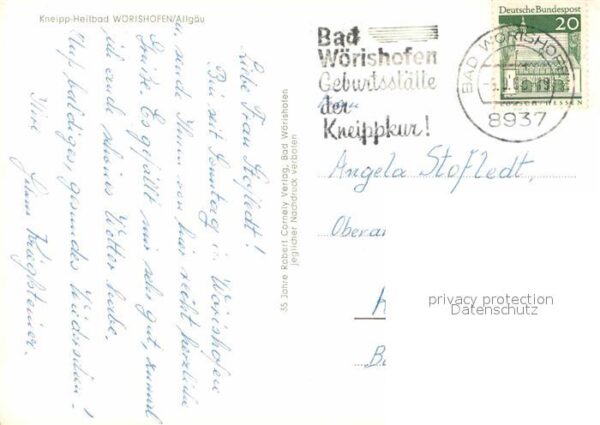 Kneipp-Heilbad WÖRISHOFEN/Allgäu
Liebe Frau Stofledt!
Bin seit Sonntag in Wörishofen
u. sende Ihnen von hier recht herzliche
Grüße. Es gefällt mir sehr gut, zumal
ich auch schönes Wetter habe.
Auf baldiges gesundes Wiedersehen!
Ihre
35 Jahre Robert Cornely Verlag, Bad Wörishofen
Jeglicher Nachdruck verboten
Bad
Wörishofen
Geburtsstätte
der
Kneippkur!
Deutsche Bundespost
20
BAD WÖRISHOFEN
8937
Frau
Angela Stofledt,
Oberam
privacy protection
Datenschutz